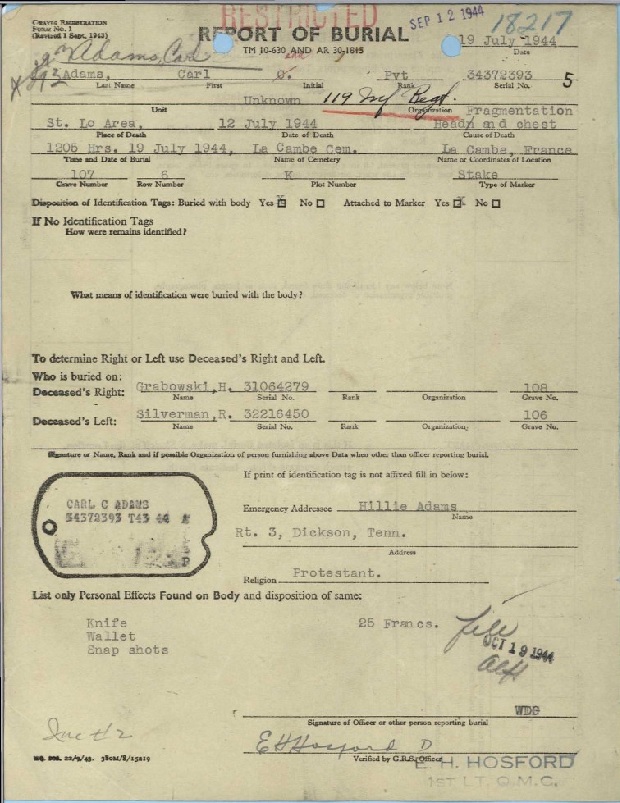 GRAVES REGISTRATION
FORM NO. 1
(Revised 1 Sept. 1943)
RESTRICTED
SEP 12 1944
18217
REPORT OF BURIAL
TM 10-630 AND AR 30-1815
19 July 1944
Date
Adams, Carl
Adams, Carl C. Pvt 34372393 5
Last Name First Initial Rank Serial No.
Unknown 119 Inf Regt.
Unit Organization Fragmentation
St. Lo Area, 12 July 1944 Head and chest
Place of Death Date of Death Cause of Death
1205 Hrs. 19 July 1944, La Cambe Cem. La Cambe, France
Time and Date of Burial Name of Cemetery Name or Coordinates of Location
107 6 K Stake
Grave Number Row Number Plot Number Type of Marker
Disposition of Identification Tags: Buried with body Yes ☒ No ☐ Attached to Marker Yes ☒ No ☐
If No Identification Tags
How were remains identified?
What means of identification were buried with the body?
To determine Right or Left use Deceased's Right and Left.
Who is buried on:
Deceased's Right: Grabowski,H. 31064279 108
Name Serial No. Rank Organization Grave No.
Deceased's Left: Silverman,R. 32216450 106
Name Serial No. Rank Organization Grave No.
Signature or Name, Rank and if possible Organization of person furnishing above Data when other than officer reporting burial.
If print of identification tag is not affixed fill in below:
CARL C ADAMS
34372393 T43 44
Emergency Addressee Hillie Adams
Name
Rt. 3, Dickson, Tenn.
Address
Religion Protestant.
List only Personal Effects Found on Body and disposition of same:
Knife 25 Francs.
Wallet
Snap shots
file
OCT 19 1944
WDB
Signature of Officer or other person reporting burial
Inc #2
E H Hosford
Verified by G.R.S. Officer
E. H. HOSFORD
1ST LT. Q.M.C.